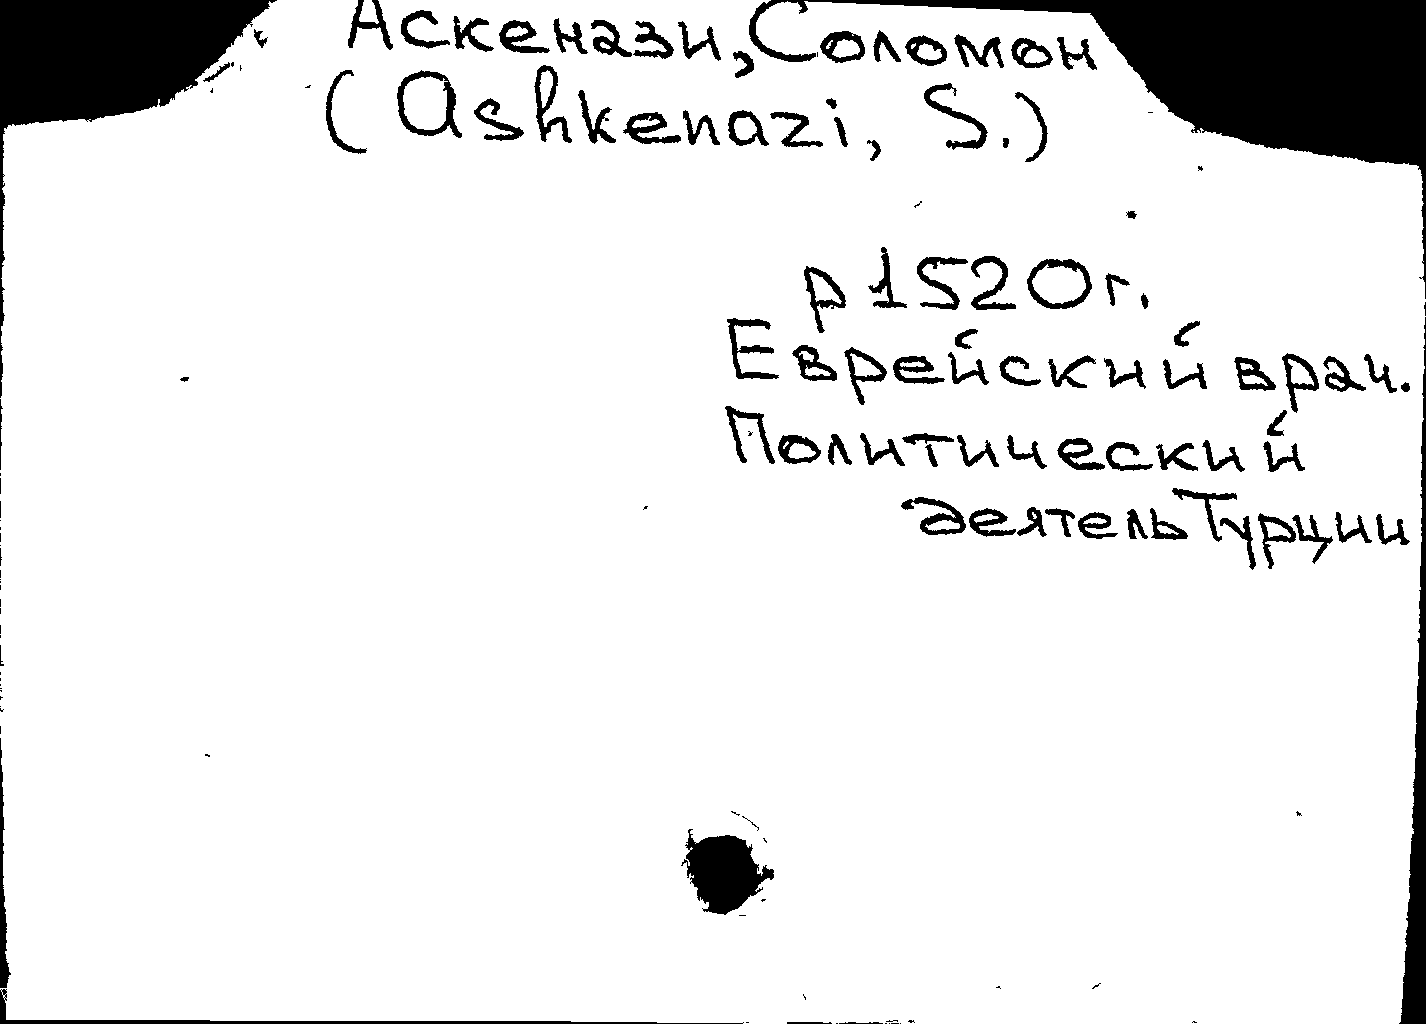 Аскенази, Соломон
(Ashkenazi, S.)
р 1520 г.
Еврейский врач.
Политический
деятель Турции